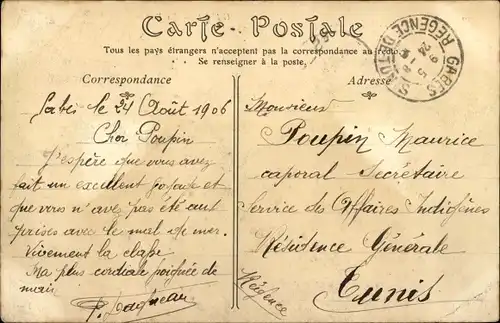 Carte Postale
Tous les pays étrangers n'acceptent pas la correspondance au recto.
Se renseigner à la poste.
Correspondance
Adresse
GABES
RÉGENCE DE
Gabès le 24 Août 1906
Cher Poupin
J'espère que vous avez
fait un excellent et
que vous n'avez pas été aux
prises avec le mal de mer.
Vivement la classe.
Ma plus cordiale poignée de
main
Monsieur
Poupin Maurice
caporal Secrétaire
Service des Affaires Indigènes
Résidence Générale
Tunis
Régence